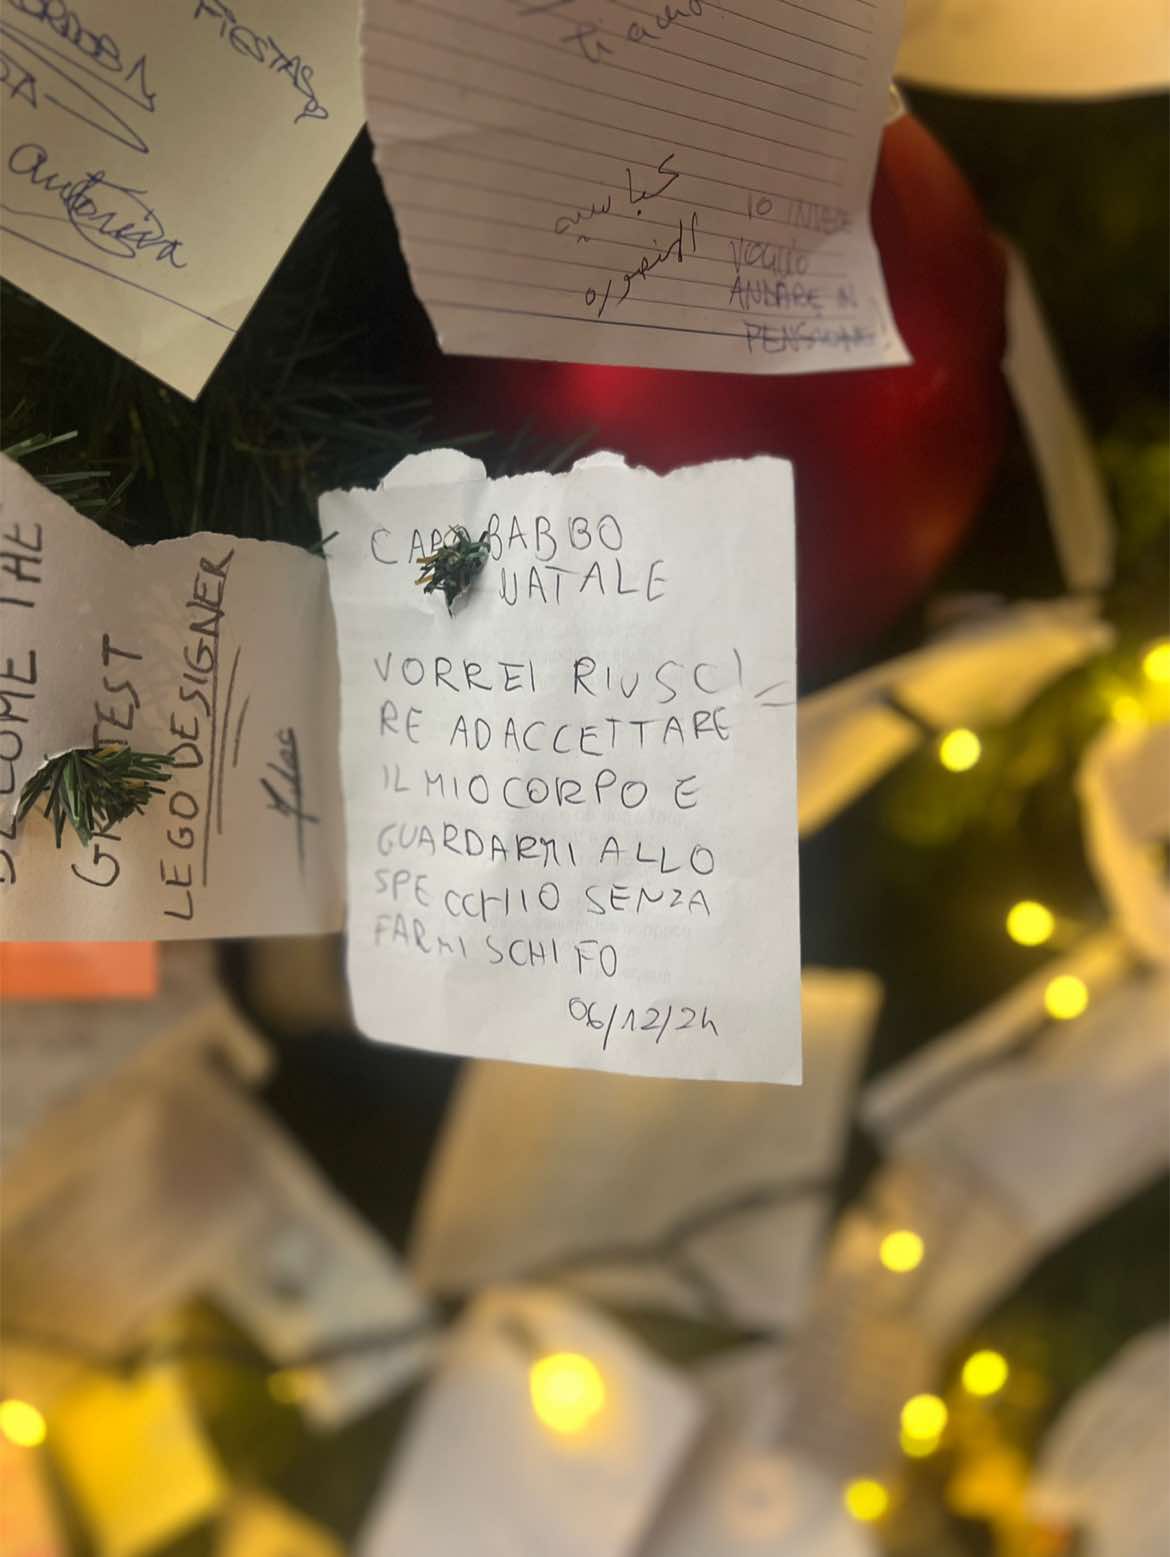 FIESTAS
autoriza
ti amo
IO INVECE
VOGLIO
ANDARE IN
PENSIONE!
BECOME THE
LEGO DESIGNER
CARO BABBO
NATALE
VORREI RIUSCI=
RE AD ACCETTARE
IL MIO CORPO E
GUARDARMI ALLO
SPECCHIO SENZA
FARMI SCHIFO
06/12/24